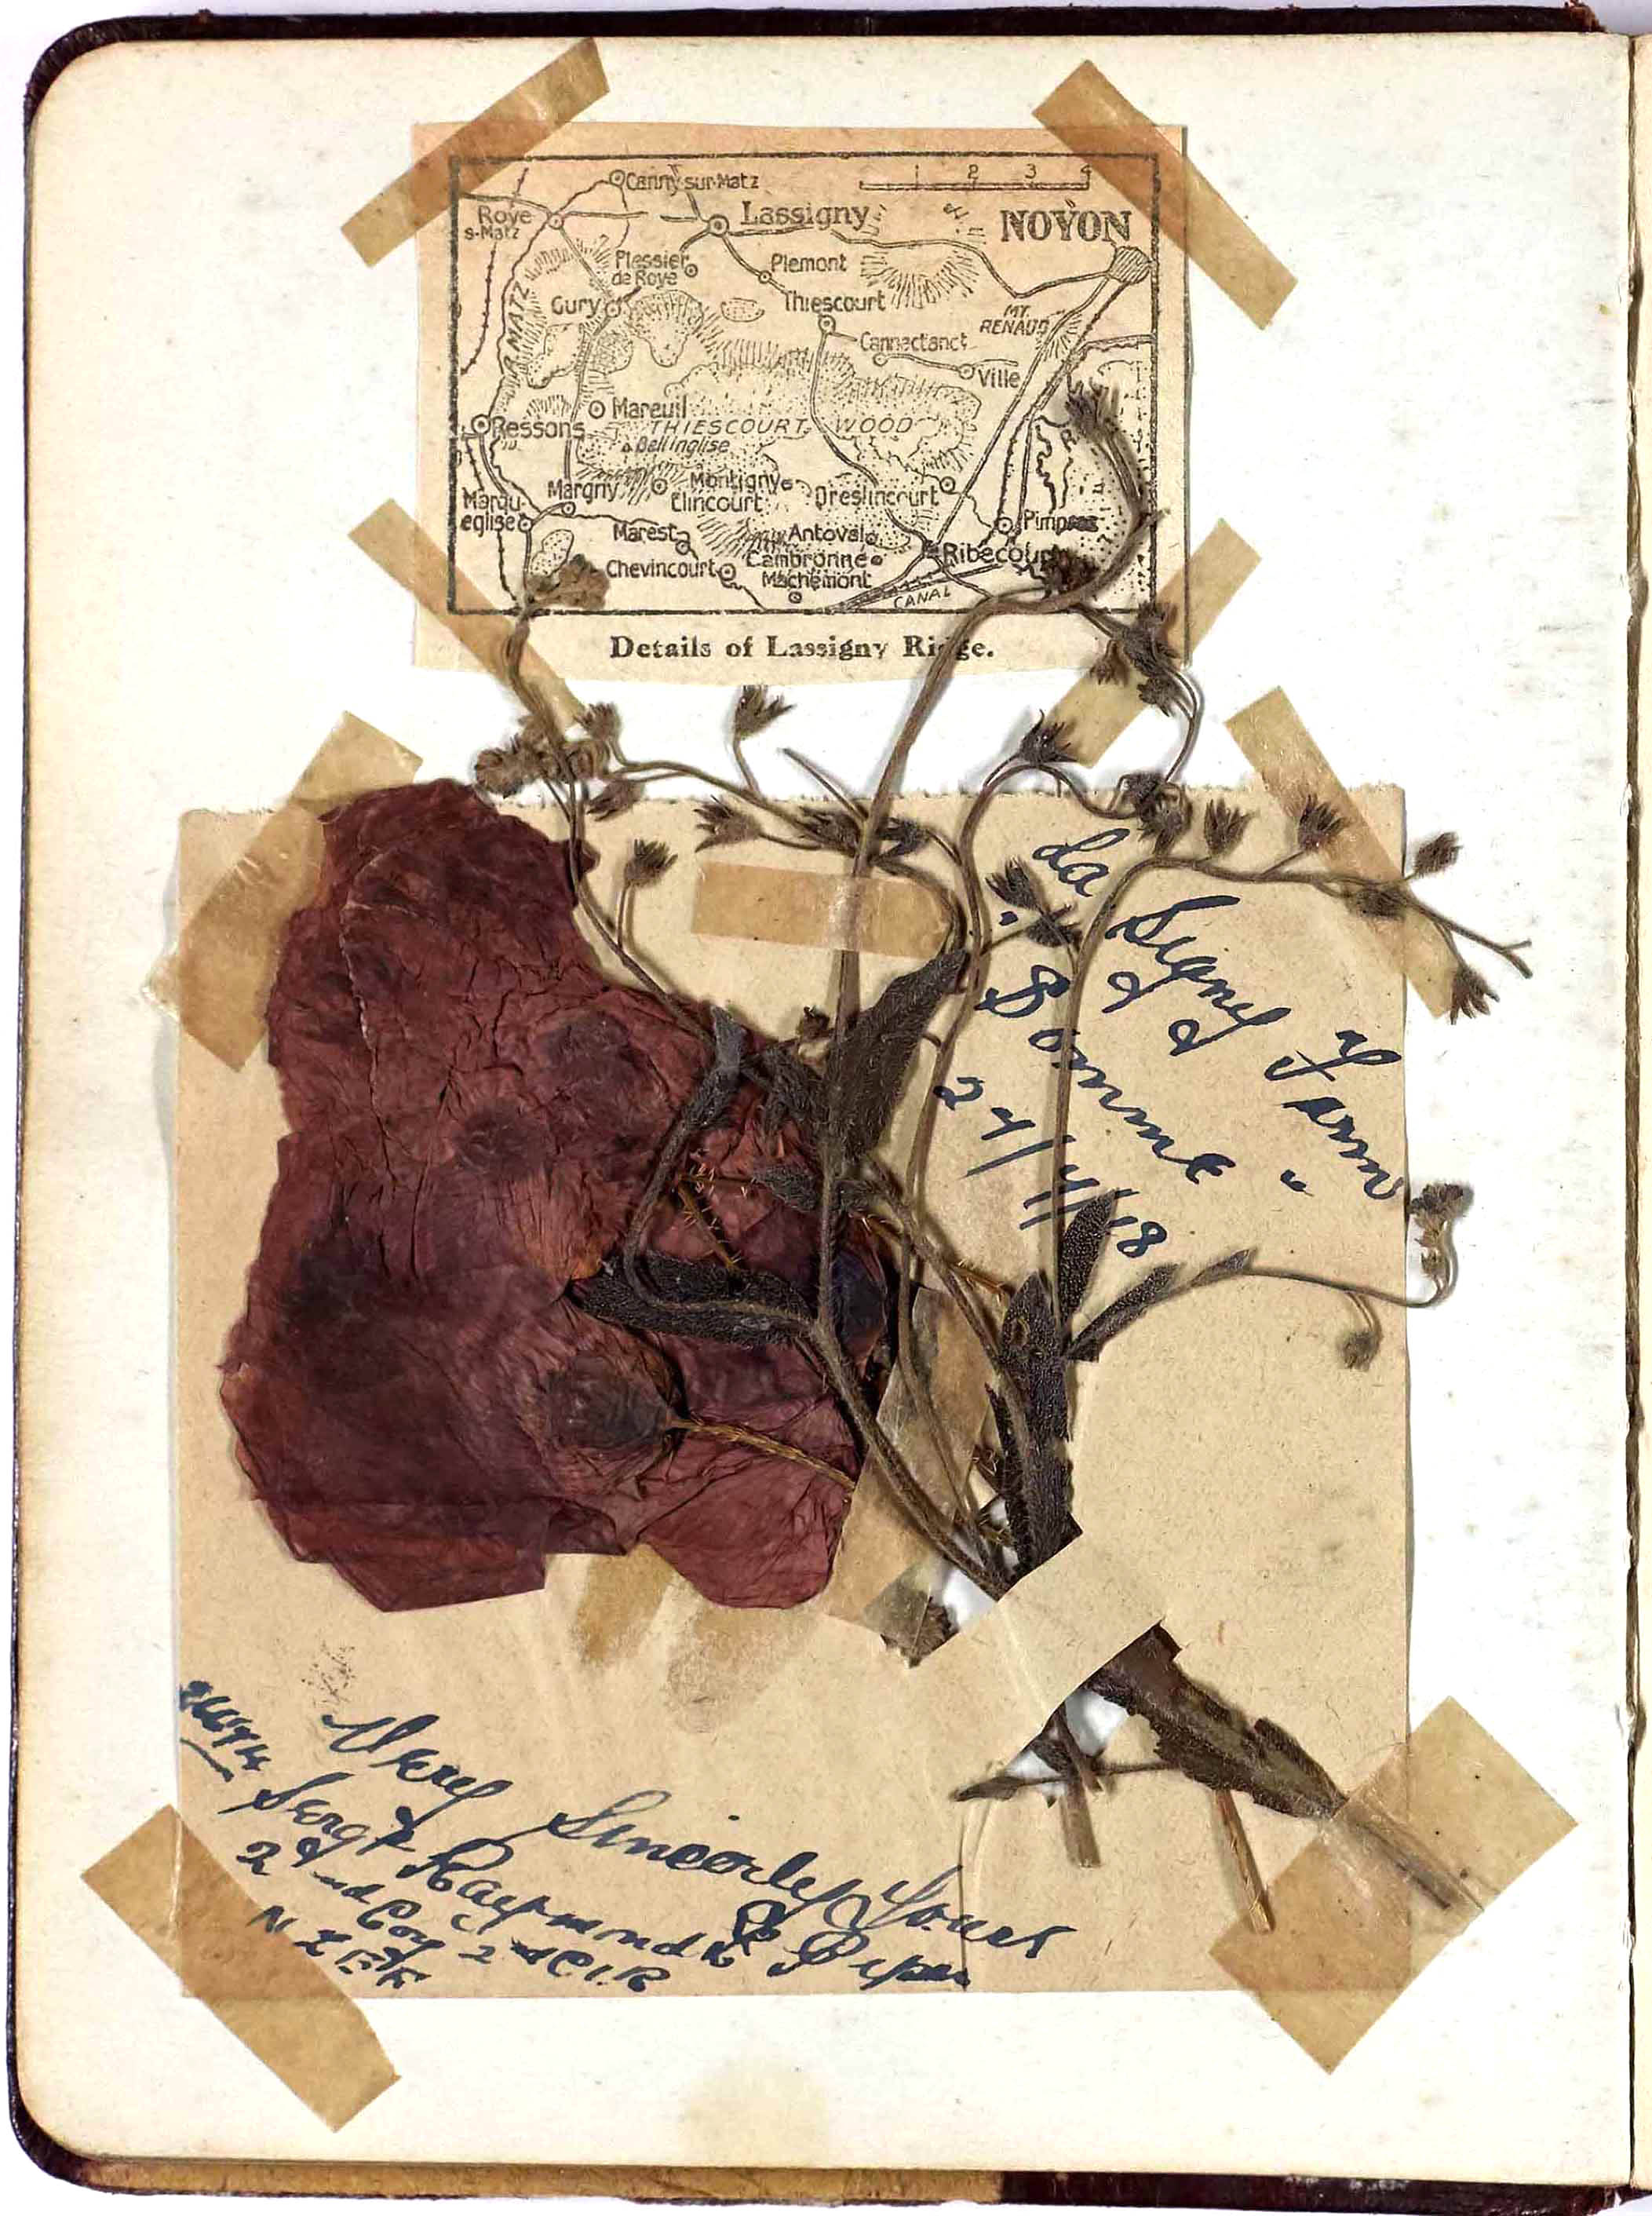 Canny-sur-Matz
1 2 3 4
Roye
s-Matz
Lassigny
NOYON
Plessier
de Roye
Plemont
Gury
Thiescourt
MT.
RENAUD
R. MATZ
Cannectanct
Ville
Mareuil
Ressons
THIESCOURT WOOD
Bellinglise
Margny
Montigny
Elincourt
Dreslincourt
Marqu-
eglise
Pimprez
Marest
Antoval
Cambronne
Ribecourt
Chevincourt
Machemont
CANAL
Details of Lassigny Ridge.
La Signy Farm
Somme
24/4/18
Very Sincerley Yours
Sergt Raymond
2nd Coy 2nd C.I.R
N.Z.E.F.